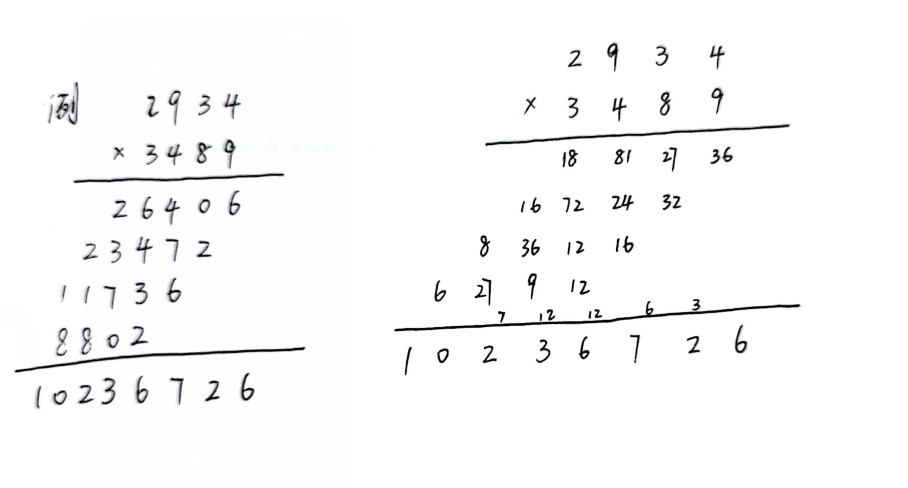 例 2 9 3 4
× 3 4 8 9
2 6 4 0 6
2 3 4 7 2
1 1 7 3 6
8 8 0 2
1 0 2 3 6 7 2 6
2 9 3 4
× 3 4 8 9
18 81 27 36
16 72 24 32
8 36 12 16
6 27 9 12
7 12 12 6 3
1 0 2 3 6 7 2 6